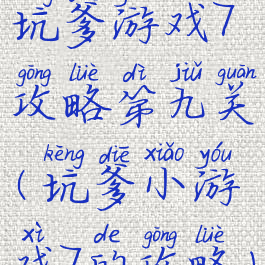 坑爹游戏7
gōng lüè dì jiǔ guān
攻略第九关
kēng diē xiǎo yóu
(坑爹小游
xì de gōng lüè
戏7的攻略)